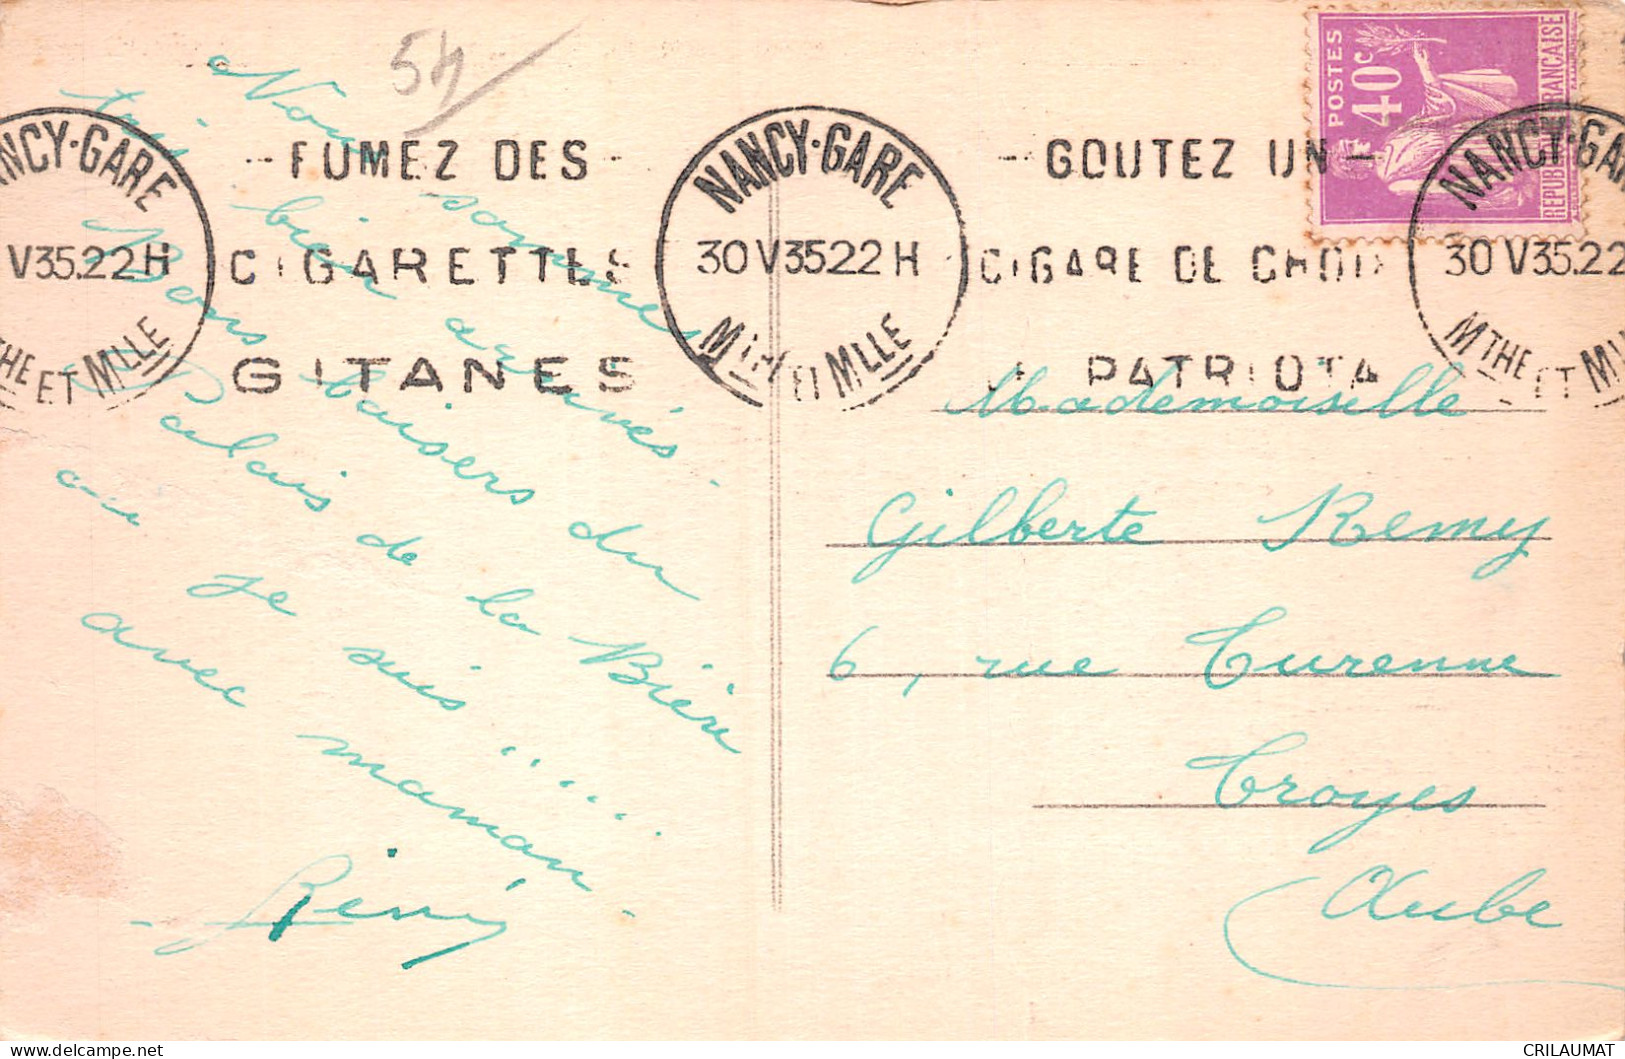 54
Nous sommes
très bien arrivés.
Bons baisers du
Palais de la Bière
où je suis .....
avec maman.
Rémy
NANCY-GARE
V35.22H
MTHE ET MLLE
- FUMEZ DES -
CIGARETTES
GITANES
NANCY-GARE
30 V 3522 H
MTHE ET MLLE
- GOUTEZ UN -
CIGARE DE CHOIX
LE PATRIOTA
NANCY-GARE
30 V35.22
MTHE ET MLLE
POSTES
40c
REPUBLIQUE FRANCAISE
Mademoiselle
Gilberte Remy
6, rue Turenne
Troyes
Aube
CRILAUMAT